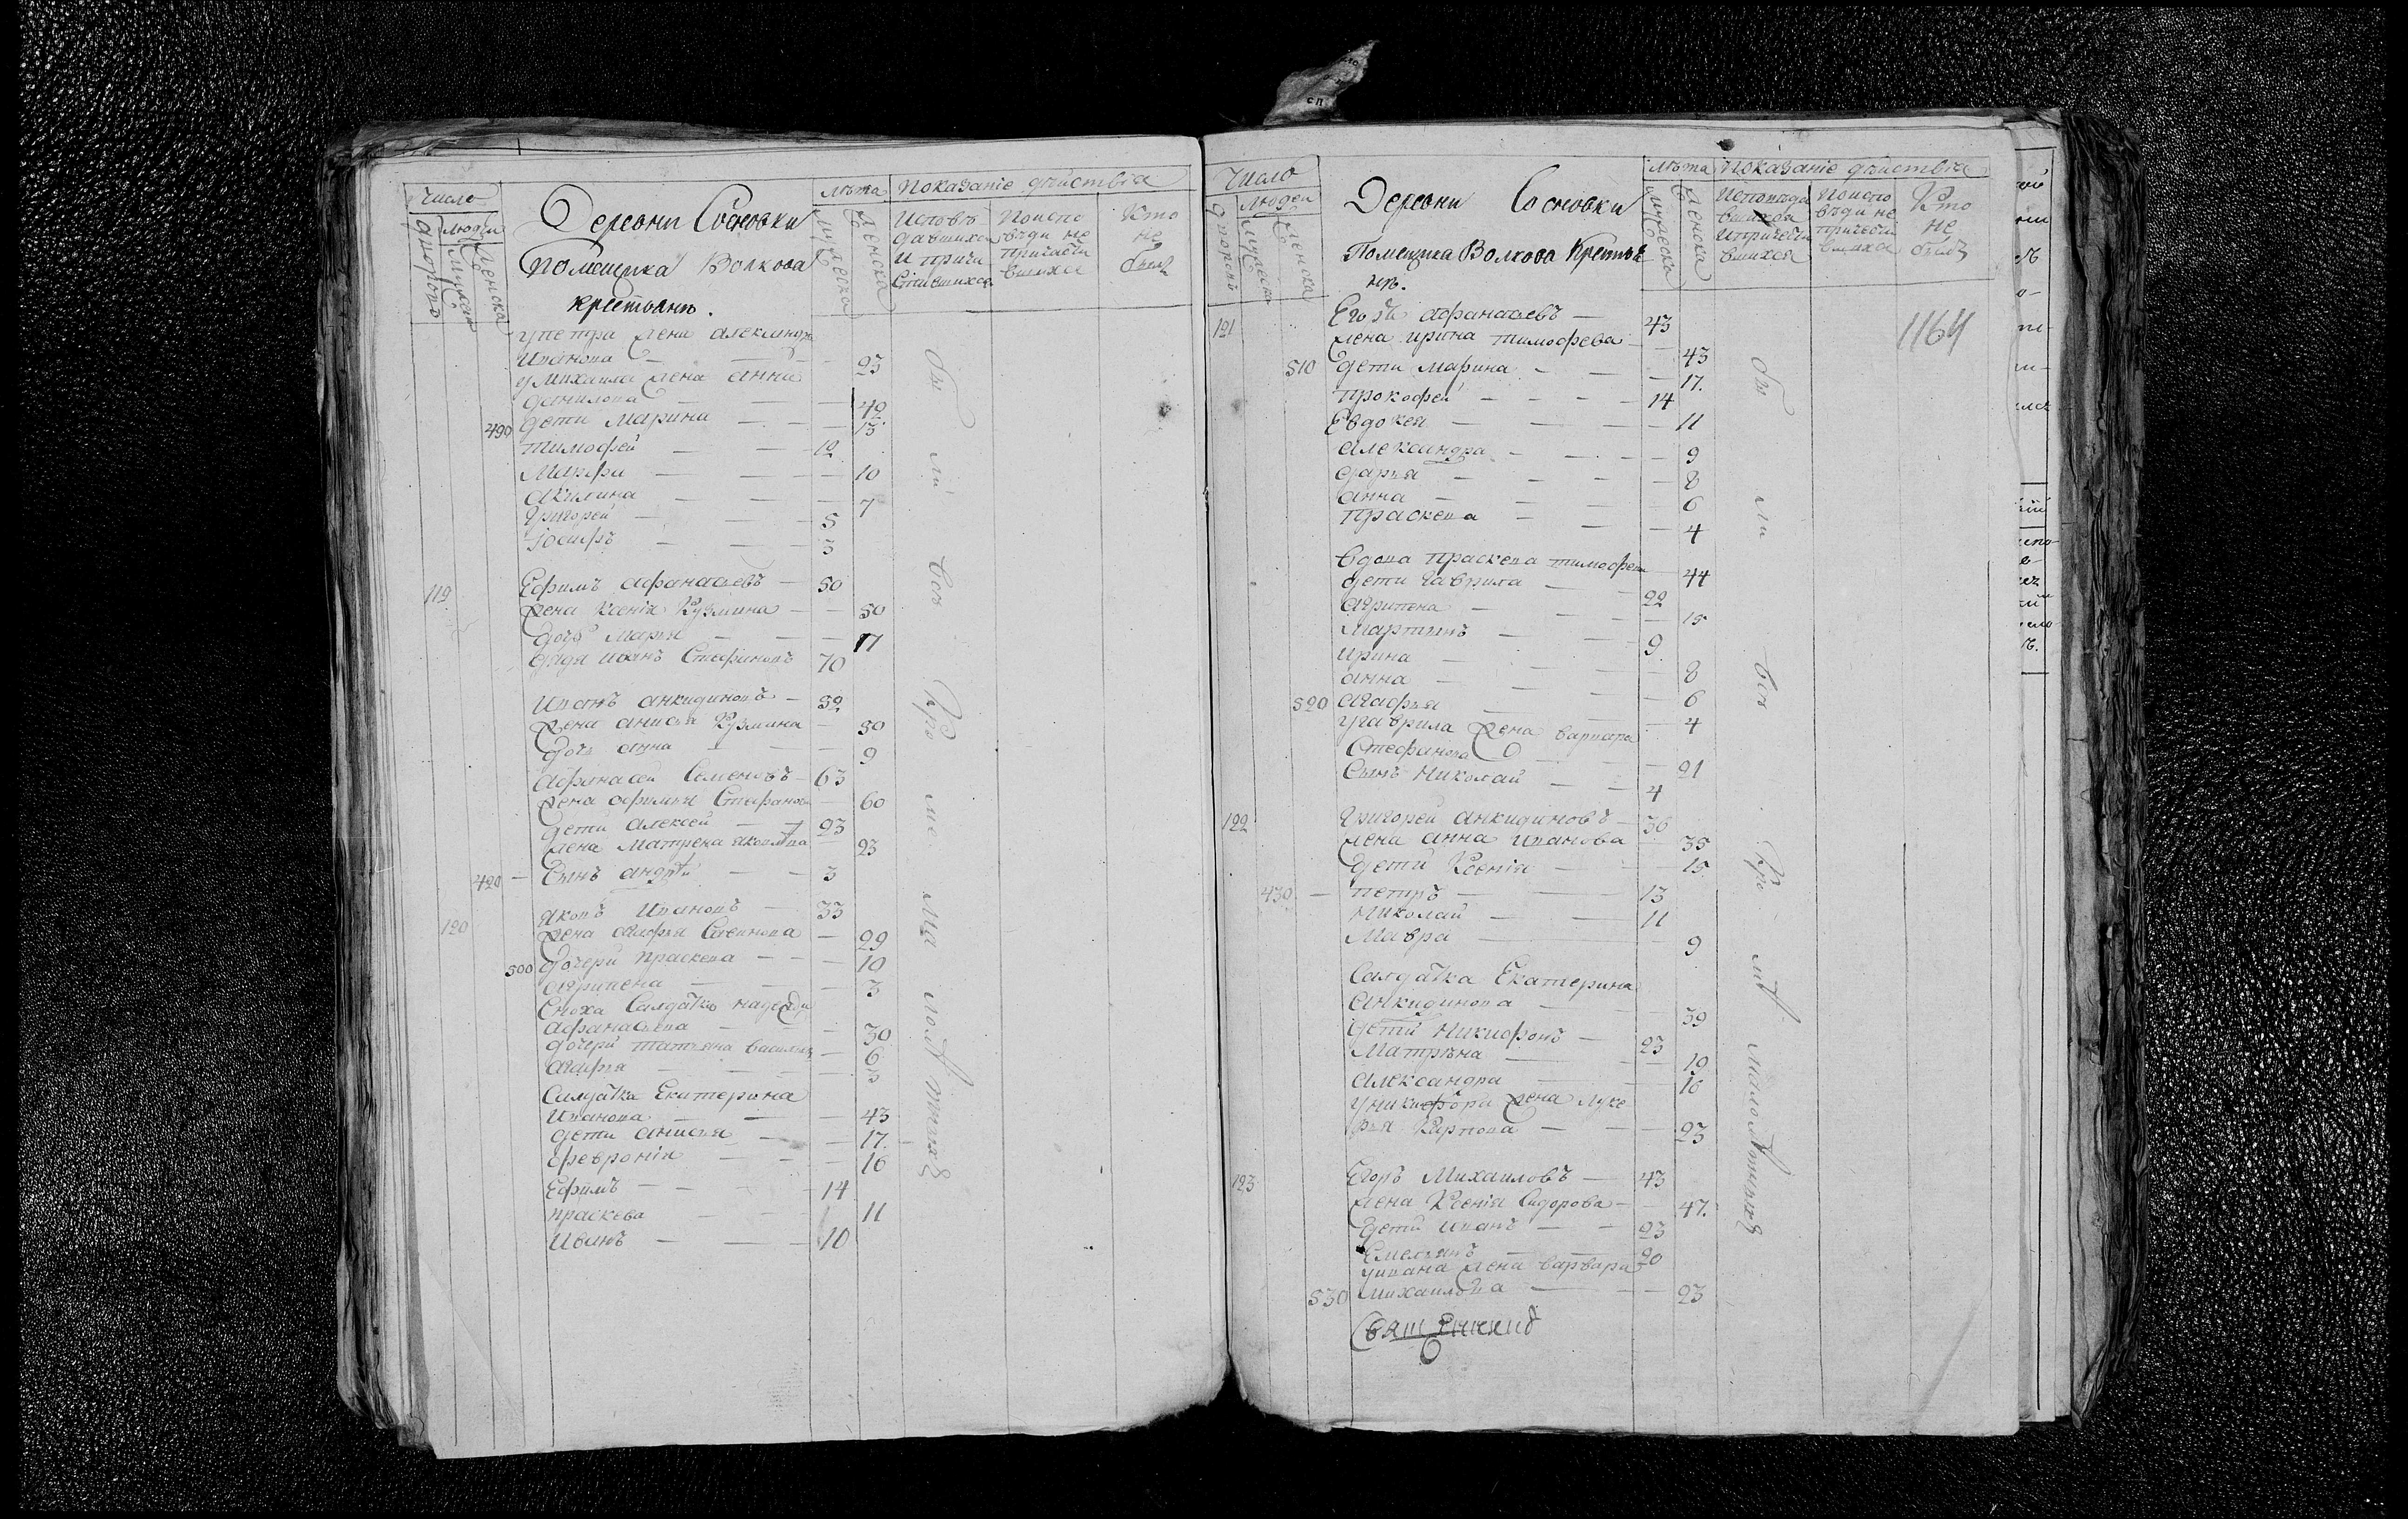 Число
Дворовъ
Людей
Мужеска
Женска
Деревни Сосновки
Помещика Волкова
крестьянъ.
лѣта
Мужеска
Женска
Показанiе дѣйствiя
Исповѣдавшихся и причастившихся
Поисповѣди не причастившихся
Кто не былъ
упетра жена александра
Иванова — 23
у Михаила жена анна
данилова — 42
490 дети Марина — 13
тимофей — 12
Марфа — 10
акилина — 7
Григорей — 5
Iосифъ — 3
119 Ефимъ афанасьевъ — 50
жена Ксенiя Кузмина — 50
дочь Марья — 17
дядя иванъ Стефановъ 70
Иванъ анкидиновъ — 52
жена анисья Кузмина — 50
дочь анна — 9
Афанасей Семеновъ — 63
жена афимья Стефанова — 60
дети алексей — 23
жена Матрена яковлева — 23
420 — Сынъ андрѣй — 3
120 яковъ Ивановъ — 33
жена — 29
500 дочери праскева — 10
агрипена — 3
Сноха Салдатка надежда
афанасьева — 30
дочери татьяна васильева — 6
агафья — 3
Салдатка Екатерина
Иванова — 43
дети анисья — 17.
Февронiя — 16
Ефимъ — 14
праскева — 11
Иванъ — 10
бы ли всѣ Кро ме ма лолѣтныхъ
Число
Дворовъ
Людей
Мужеска
Женска
Деревни Сосновки
Помещика Волкова Крестья
нъ.
лѣта
Мужеска
Женска
Показанiе дѣйствiя
Исповѣдавшихся ипричастившихся
Поисповѣди не причастившихся
Кто не былъ
1164
121 Егоръ афанасьевъ — 43
жена ирина тимофева — 43
510 дети марина — 17.
прокофей — 14
Евдокея — 11
александра — 9
дарья — 8
анна — 6
праскева — 4
вдова праскева тимофева — 44
дети гаврила — 22
агрипена — 15
мартынъ — 9
ирина — 8
анна — 6
520 агафья — 4
угаврила жена варвара
Стефанова — 21
Сынъ Николай — 4
122 Григорей анкидиновъ — 36
жена анна иванова — 35
дети Ксенiя — 15
430 — петръ — 13
Николай — 11
Мавра — 9
Салдатка Екатерина
анкидинова — 39
дети Никифоръ — 23
Матрѣна — 19
александра — 16
уникифора жена луке
рья Карпова — 23
123 Егоръ Михаиловъ — 43
жена Ксенiя Сидорова — 47.
дети иванъ — 23
Емельянъ — 20
уивана жена варвара
530 михаилова — 23
Священникъ
бы ли всѣ Кро мѣ малолѣтныхъ